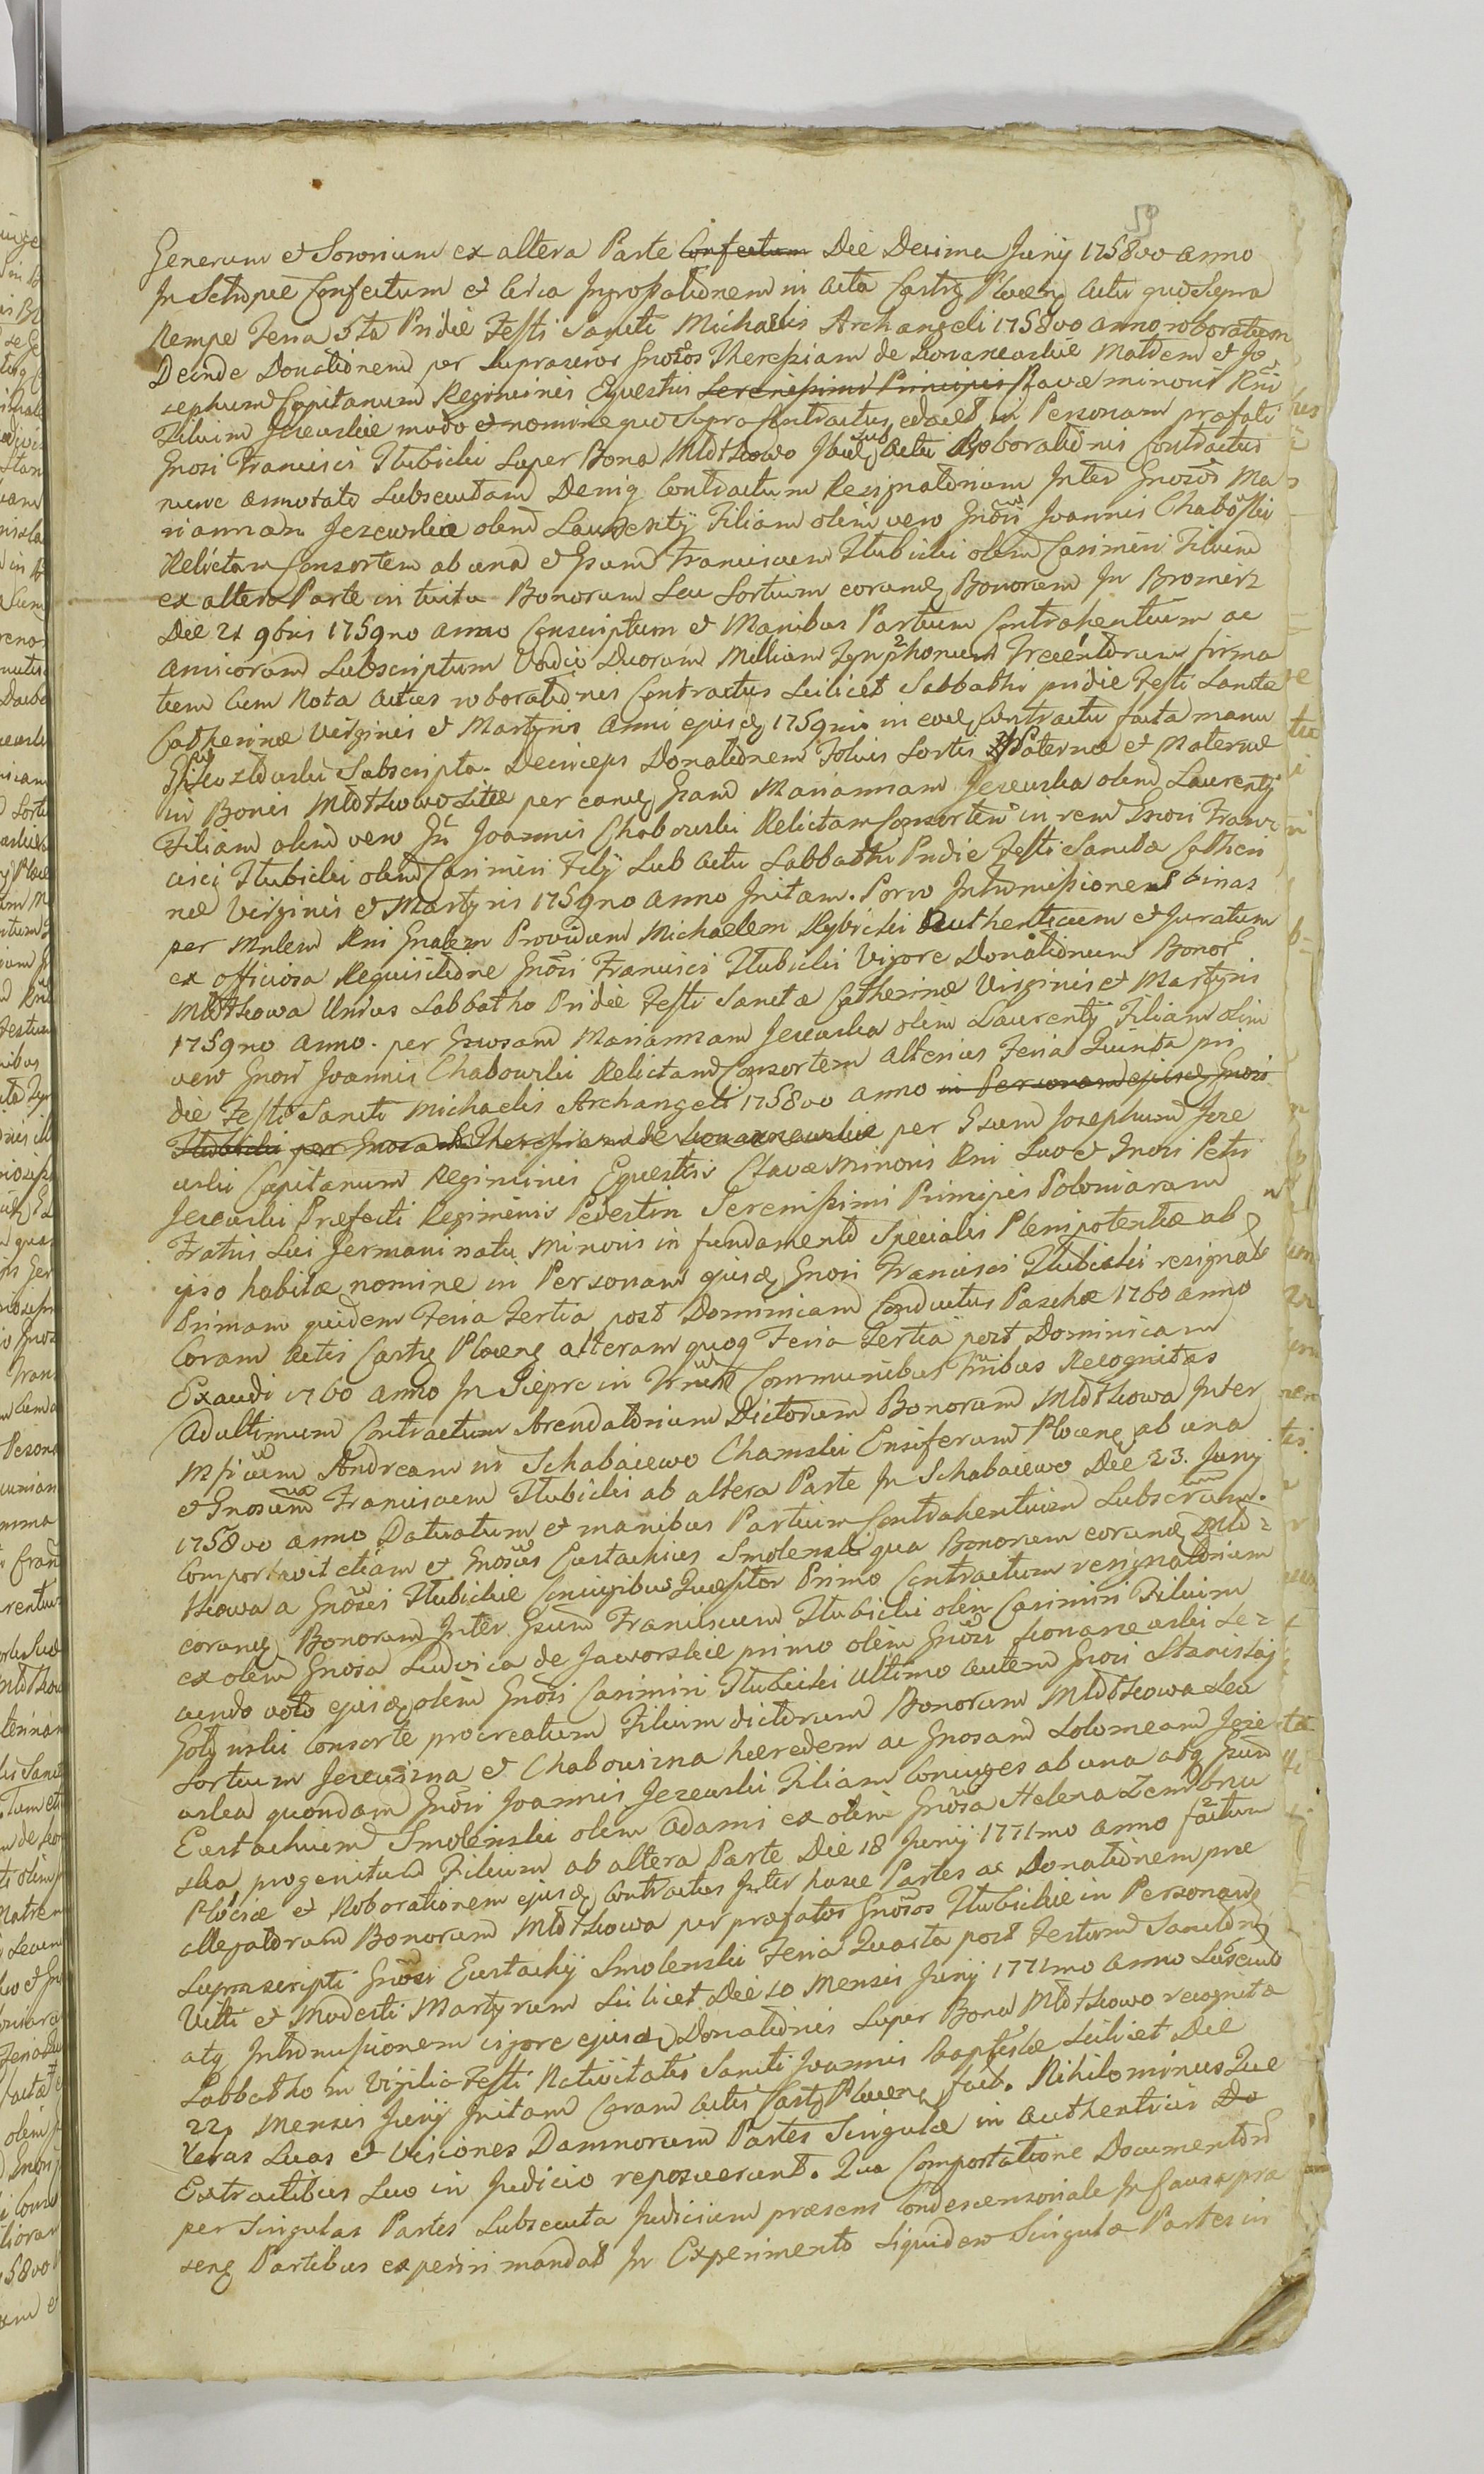 59
Generum et Sororium ex altera Parte Confectum Die Decima Juny 1758vo anno
In Setropie Confectum et circa Ingrossationem in acta Castry Plocen actu quo Supra
Nempe Feria 5ta Pridie Festi Sancti Michaelis Archangeli 1758vo anno roboratum
Deinde Donationem per Suprascros Gnosos Theresiam de Matrem et Jo
sephum Capitanum Regiminis Equestris Serenissimi Principis Clavæ minoris Rni
Filium Jezewskie modo et nomine quo Supra Contractus edocet in Personam præfati
Gnosi Francisci Itubicki Super Bona Mlotkowo actu Roborationis Contractus
nunc annotato Subsecutam Deniq Contractum Resignatorium Inter Gnosos Ma
riannam Jezewska olim Laurenty Filiam olim vero Gnosi Joannis Chabowski
Relictam Consortem ab una et Gsum Franciscum Itubicki olim Casimiri Filium
ex altera Parte in tuitu Bonorum Seu Sortium eorund Bonorum In Bromierz
Die 21 9bris 1759no anno Conscriptum et Manibus Partium Contrahentium ac
amicorum Subscriptum Vadio Duorum Millium Trecentorum firma
tum cum Nota actus roborationis Contractus Scilicet Sabbatho pridie Festi Sanctæ
Catherinæ Virginis et Martyris Anni ejusd 1759ni in eod Contractu facta manu
Subscripta. Deinceps Donationem Totius Sortis Paternæ et Maternæ
in Bonis Mlotkowo Sitæ per eand Gsam Mariannam Jezewska olim Laurenty
Filiam olim vero Gn Joannis Chabowski Relictam Consortem in rem Gnosi Fran
cisci Itubicki olim Casimiri Fily Sub actu Sabbatho Pridie Festi Sanctæ Catheri
næ Virginis et Martyris 1759no anno Initam. Porro Intromissiones binas
per Mnlem Rni Gnalem Providum Michaelem Rybicki Authenticum et Juratum
ex officiosa Requisitione Gnosi Francisci Itubicki Vigore Donationum Bonor
Mlotkowa Unius Sabbatho Pridie Festi Sanctæ Catherinæ Virginis et Martyris
1759no anno. per Gnosam Mariannam Jezewska olim Laurenty Filiam olim
vero Gnosi Joannis Chabowski Relictam Consortem alterius Feria Quinta pri
die Festo Sancti Michaelis Archangeli 1758vo anno in Personam ejusd Gnosi
Itubicki per Gnosam Theresiam de per Gsum Josephum Jeze
wski Capitanum Regiminis Equestris Clavæ Minoris Rni Suo et Gnosi Petri
Jezewski Præfecti Regiminis Pedestris Serenissimi Principis Poloniarum
Fratris Sui Germani natu Minoris in fundamento Specialis Plenipotentiæ ab
ipso habitæ nomine in Personam ejusd Gnosi Francisci Itubicki resignat
Primam quidem Feria Tertia post Dominicam Conductus Paschæ 1760 anno
Coram actis Castry Plocen alteram quoq Feria Tertia post Dominicam
Exaudi 1760 anno In Sieprc in Communibus Recognitas
Ad ultimum Contractum Arendatorium Dictorum Bonorum Mlotkowa Inter
Andream in Schabaiewo Chamski Ensiferum Plocen ab una
et Gnosum Franciscum Itubicki ab altera Parte In Schabaiewo Die 23. Juny
1758vo anno Datuatum et manibus Partium Contrahentium Subscrum.
Comportavit etiam et Gnosus Eustachius Smolenski qua Bonorum eorund Mlo
tkowa a Gnosis Itubickie Conjugibus Quæstor Primo Contractum resignatorium
eorund Bonorum Inter Gsum Franciscum Itubicki olim Casimiri Filium
ex olim Gnosa Ludvica de Jaworskie primo olim Gnosi Se
cundo voto ejusd olim Gnosi Casimiri Itubicki Ultimo autem Gnosi Stanislaj
Consorte procreatum Filium dictorum Bonorum Mlotkowa Seu
Sortium Jezewizna et Chabowizna hæredem ac Gnosam Solomeam Jeze
wska quondam Gnosi Joannis Jezewski Filiam Conjuges ab una atq Gsum
Eustachium Smolenski olim Adami ex olim Gnosa Helena Zembrzu
ska progenitum Filium ab altera Parte Die 18 Juny 1771mo anno factum
Plociæ et Roborationem ejusd Contractus Inter hasce Partes ac Donationem præ
allegatorum Bonorum Mlotkowa per præfatos Gnosos Itubickie in Personam
Suprascripti Gnosi Eustachy Smolenski Feria Quarta post Festum Sanctor
Vitti et Modesti Martyrum Scilicet Die 10 Mensis Juny 1771mo anno
atq Intromissionem vigore ejusd Donationis Super Bona Mlotkowo recognita
Sabbatho in Vigilia Festi Nativitatis Sancti Joannis Baptistæ Scilicet Die
22 Mensis Juny Initam Coram actis Castry Plocen fact. Nihilominus Que
relas Suas et Visiones Damnorum Partes Singulæ in authenticis Do
Extractibus Suo in Judicio reposuerunt. Qua Comportatione Documentor
per Singulas Partes Subsecuta Judicium præsens Condescensoriale In Causa præ
sen Partibus experiri mandat In Experimento Siquidem Singulæ Partes in